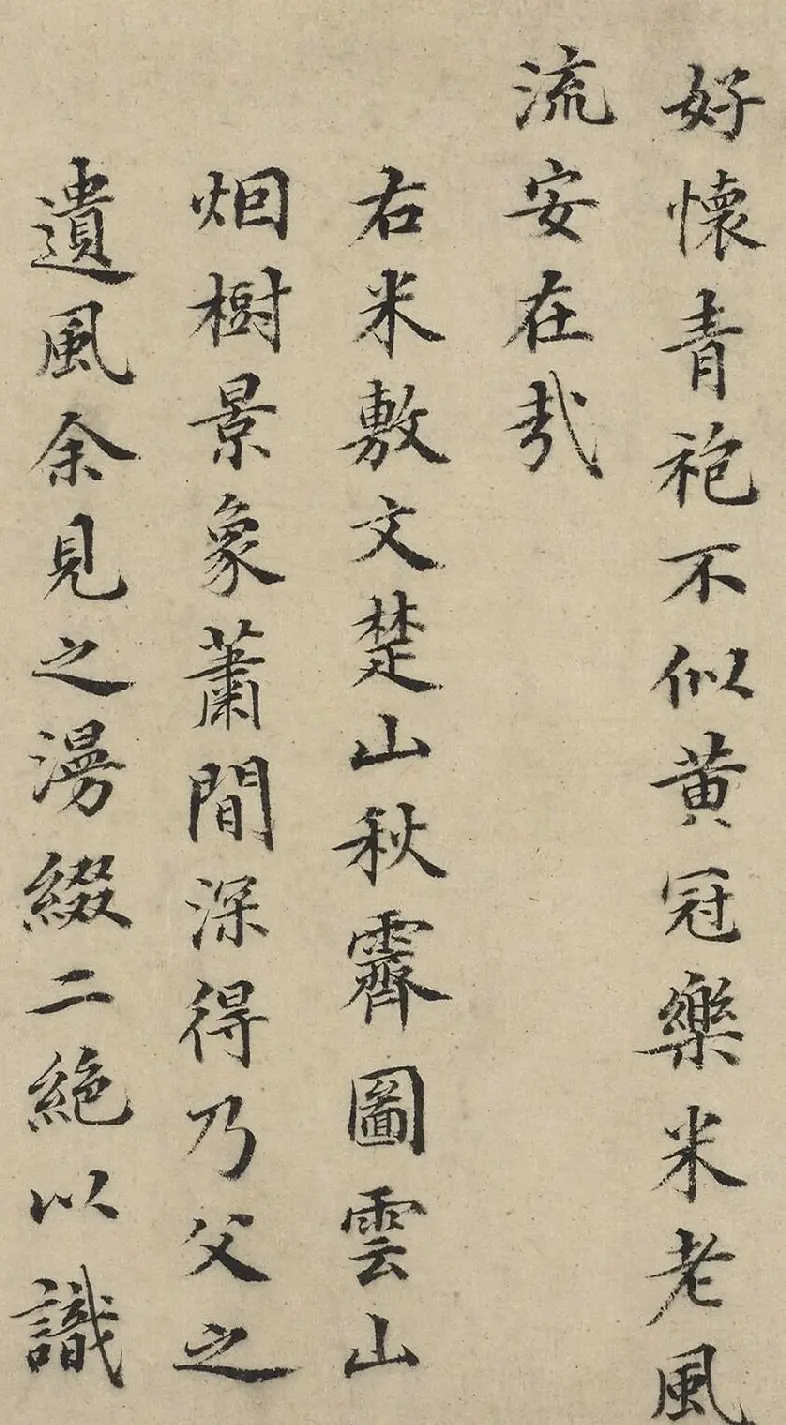 好懷青袍不似黄冠樂米老風
流安在哉
右米敷文楚山秋霽圖雲山
烟樹景象蕭閒深得乃父之
遺風余見之漫綴二絶以識